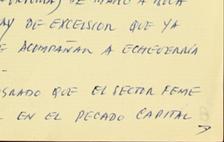 DE MANO A BOCA
AY DE EXCELSIOR QUE YA
E ACOMPAÑAR A ECHEVERRÍA
OGRADO QUE EL SECTOR FEME
EN EL PECADO CAPITAL